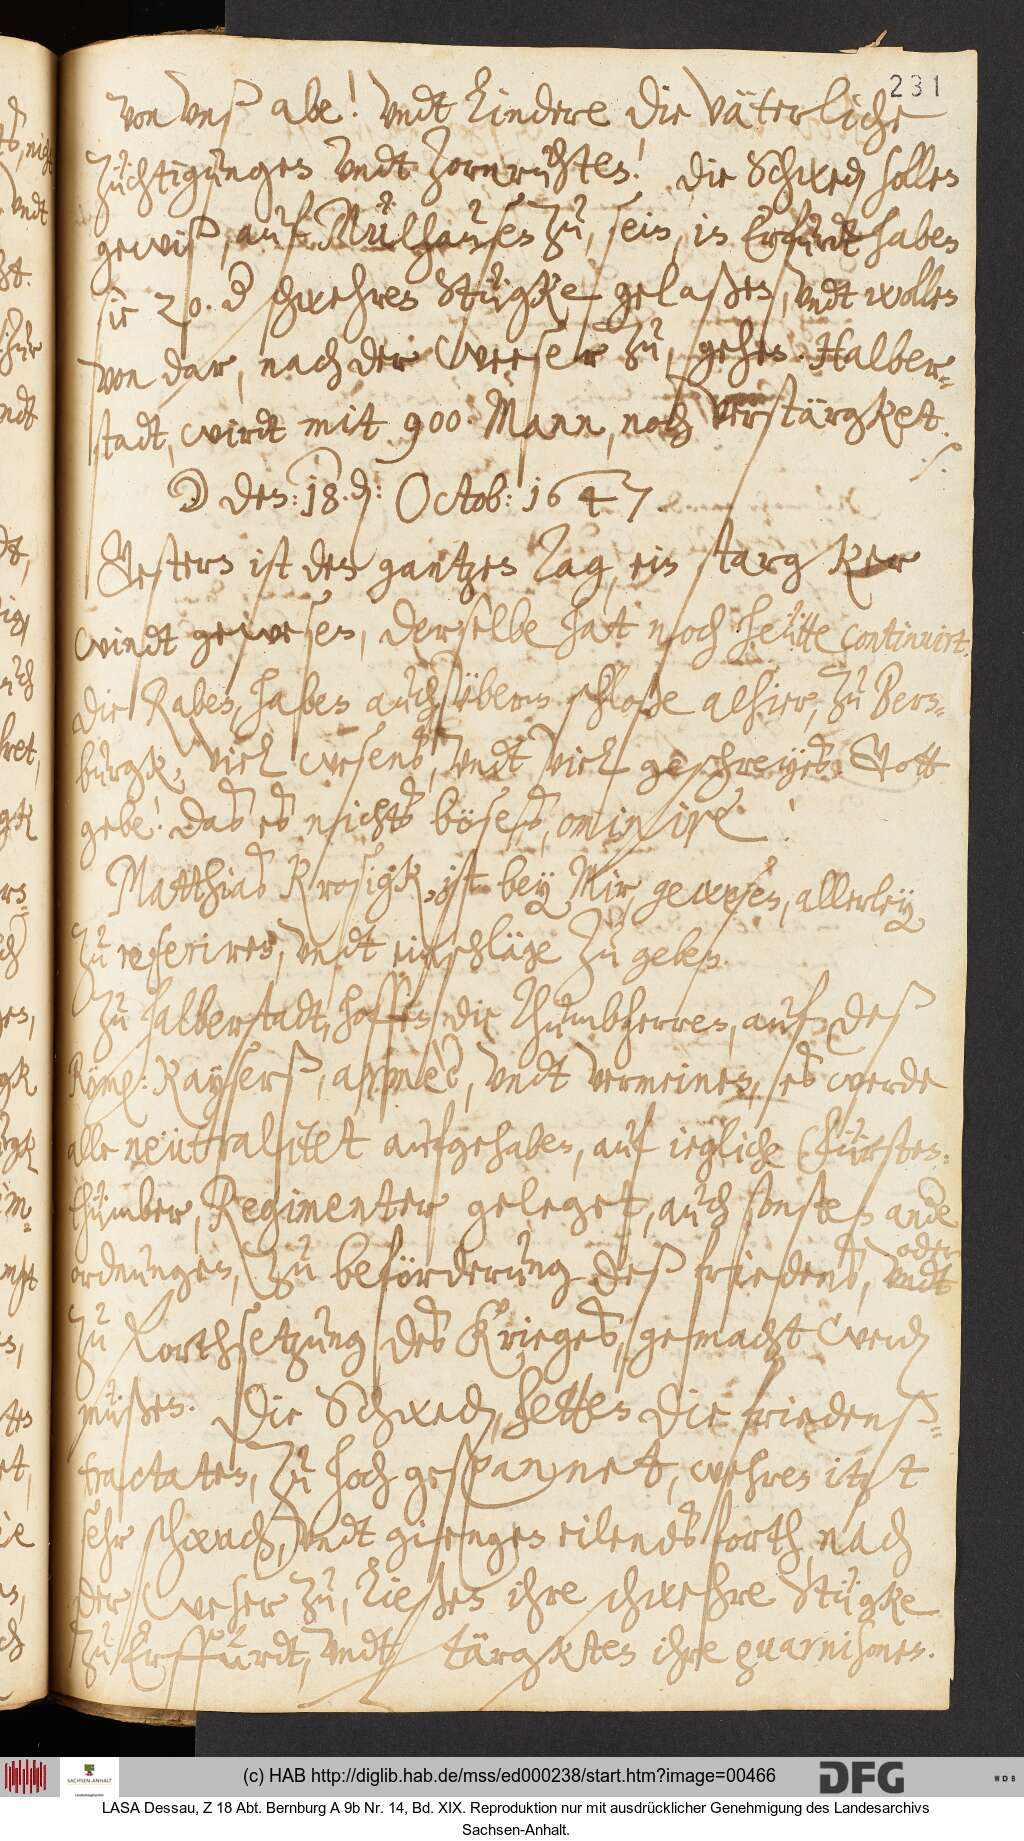 231
von unß abe! undt lindere die väterliche
züchtigungen undt zornruhten! die Schwed[en] sollen
gewiß, auf Mülhausen zu, sein, in Erfurdt haben
sie 20. schwehren Stügke gelaßen, undt wollen
von dar, nach der Weeser zu, gehen. Halber¬
stadt, wirdt mit 900. Mann, noch verstärgket.
☽ den: 18. d: Octob: 1647.
Gestern ist den gantzen Tag, ein starger
windt gewesen, derselbe hatt noch heütte continuirt.
Die Raben, haben auch übern schloße alhier, zu Bern¬
burgk, viel wesens, undt viel geschreyes. Gott
gebe! das es nichts böses, ominire!
Matthias Krosigk, ist bey Mir, gewesen, allerley
zu referiren, undt einschläge zu geben.
Zu halberstadt, hoffen die Thumbherren, auf deß
Röm: Kaysers, armèe, undt vermeinen, es werde
alle neutralitet aufgehaben, auf iegliche Fürsten¬
thümber, Regimenter geleget, auch sonsten andere
ordnungen, zu beförderung deß friedens, undt oder
zu forthsetzung des Krieges, gemacht werden
müßen. Die Schweden, hetten die friedenß¬
tractaten, zu hoch gespannet, wehren itzt
sehr schwach, undt giengen eilends forth, nach
der Weser zu, ließen ihre schwehre Stügke
zu Erffurdt, undt stärgkten ihre guarnisonen.
(c) HAB http://diglib.hab.de/mss/ed000238/start.htm?image=00466
SACHSEN-ANHALT
DFG
WDB
LASA Dessau, Z 18 Abt. Bernburg A 9b Nr. 14, Bd. XIX. Reproduktion nur mit ausdrücklicher Genehmigung des Landesarchivs
Sachsen-Anhalt.